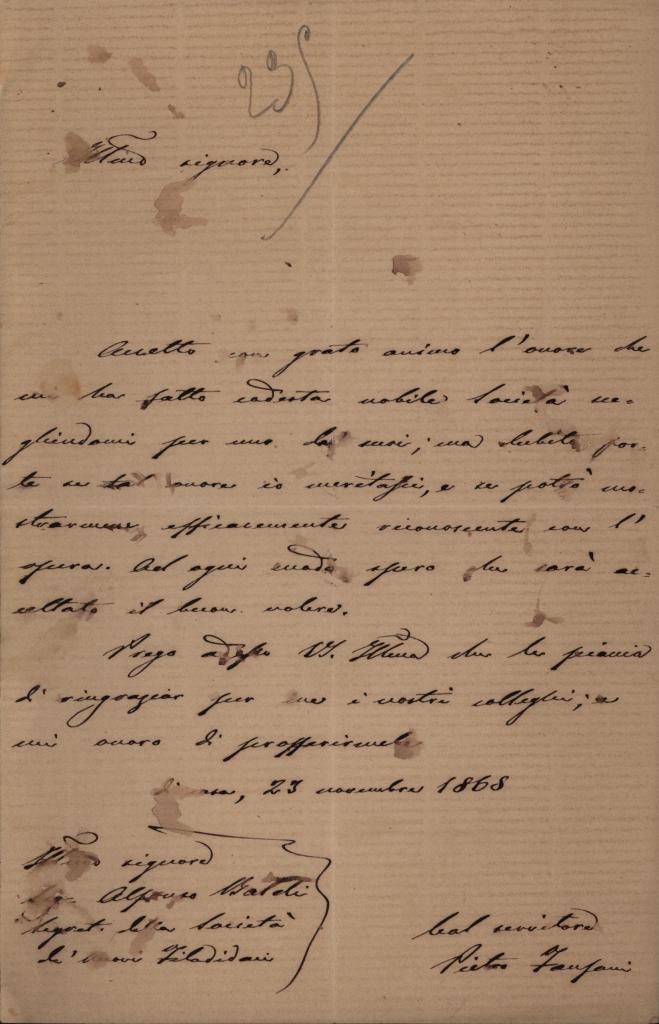 235
Illmo signore,
Accetto con grato animo l'onore che
mi ha fatto codesta nobile Società sce=
gliendomi per uno de' suoi; ma dubito for=
te se tal onore io meritassi, e se potrò mo=
strarmene efficacemente riconoscente con l'
opera. Ad ogni modo spero che sarà ac=
cettato il buon volere.
Prego adesso V.S. Illma che le piaccia
di ringraziar per me i nostri colleghi; e
mi onoro di profferirmele
di casa, 23 novembre 1868
Illmo signore
Sig. Alfonso
Segret. della Società
de' nuovi Filodidaci
Pietro Fanfani